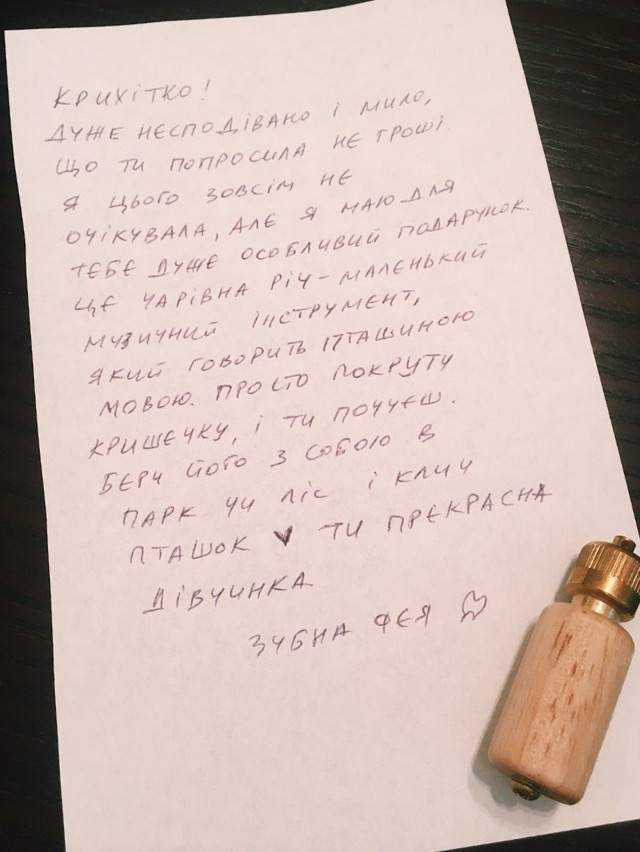 КРИХІТКО!
ДУЖЕ НЕСПОДІВАНО І МИЛО,
ЩО ТИ ПОПРОСИЛА НЕ ГРОШІ.
Я ЦЬОГО ЗОВСІМ НЕ
ОЧІКУВАЛА, АЛЕ Я МАЮ ДЛЯ
ТЕБЕ ДУЖЕ ОСОБЛИВИЙ ПОДАРУНОК.
ЦЕ ЧАРІВНА РІЧ – МАЛЕНЬКИЙ
МУЗИЧНИЙ ІНСТРУМЕНТ,
ЯКИЙ ГОВОРИТЬ ПТАШИНОЮ
МОВОЮ. ПРОСТО ПОКРУТУ
КРИШЕЧКУ, І ТИ ПОЧУЄШ.
БЕРИ ЙОГО З СОБОЮ В
ПАРК ЧИ ЛІС І КЛИЧ
ПТАШОК ♥ ТИ ПРЕКРАСНА
ДІВЧИНКА
ЗУБНА ФЕЯ